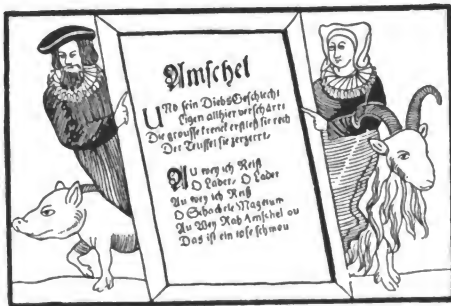 Amschel
UNd sein Diebs Geschlecht
Ligen allhier verscharrt
Die grousse krenck erstieß sie recht
Der Teuffel sie zerzerrt.
AU wey ich Reiß
O Lader, O Lader
Au wey ich Reiß
O Schacherle Magerum
Au Wey Rab Amschel ou
Das ist ein lose schmou